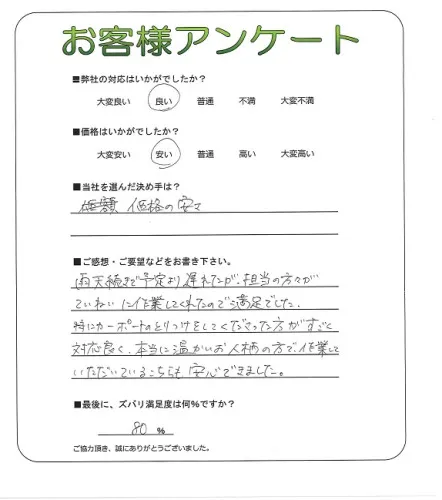 お客様アンケート
■弊社の対応はいかがでしたか？
大変良い 良い 普通 不満 大変不満
■価格はいかがでしたか？
大変安い 安い 普通 高い 大変高い
■当社を選んだ決め手は？
価格の安さ
■ご感想・ご要望などをお書き下さい。
雨天続きで予定より遅れたが、担当の方々が
ていねいに作業してくれたので満足でした。
特にカーポートのとりつけをしてくださった方がすごく
対応良く、本当に温かいお人柄の方で作業して
いただいているこちらも安心できました。
■最後に、ズバリ満足度は何%ですか？
80 %
ご協力頂き、誠にありがとうございました。